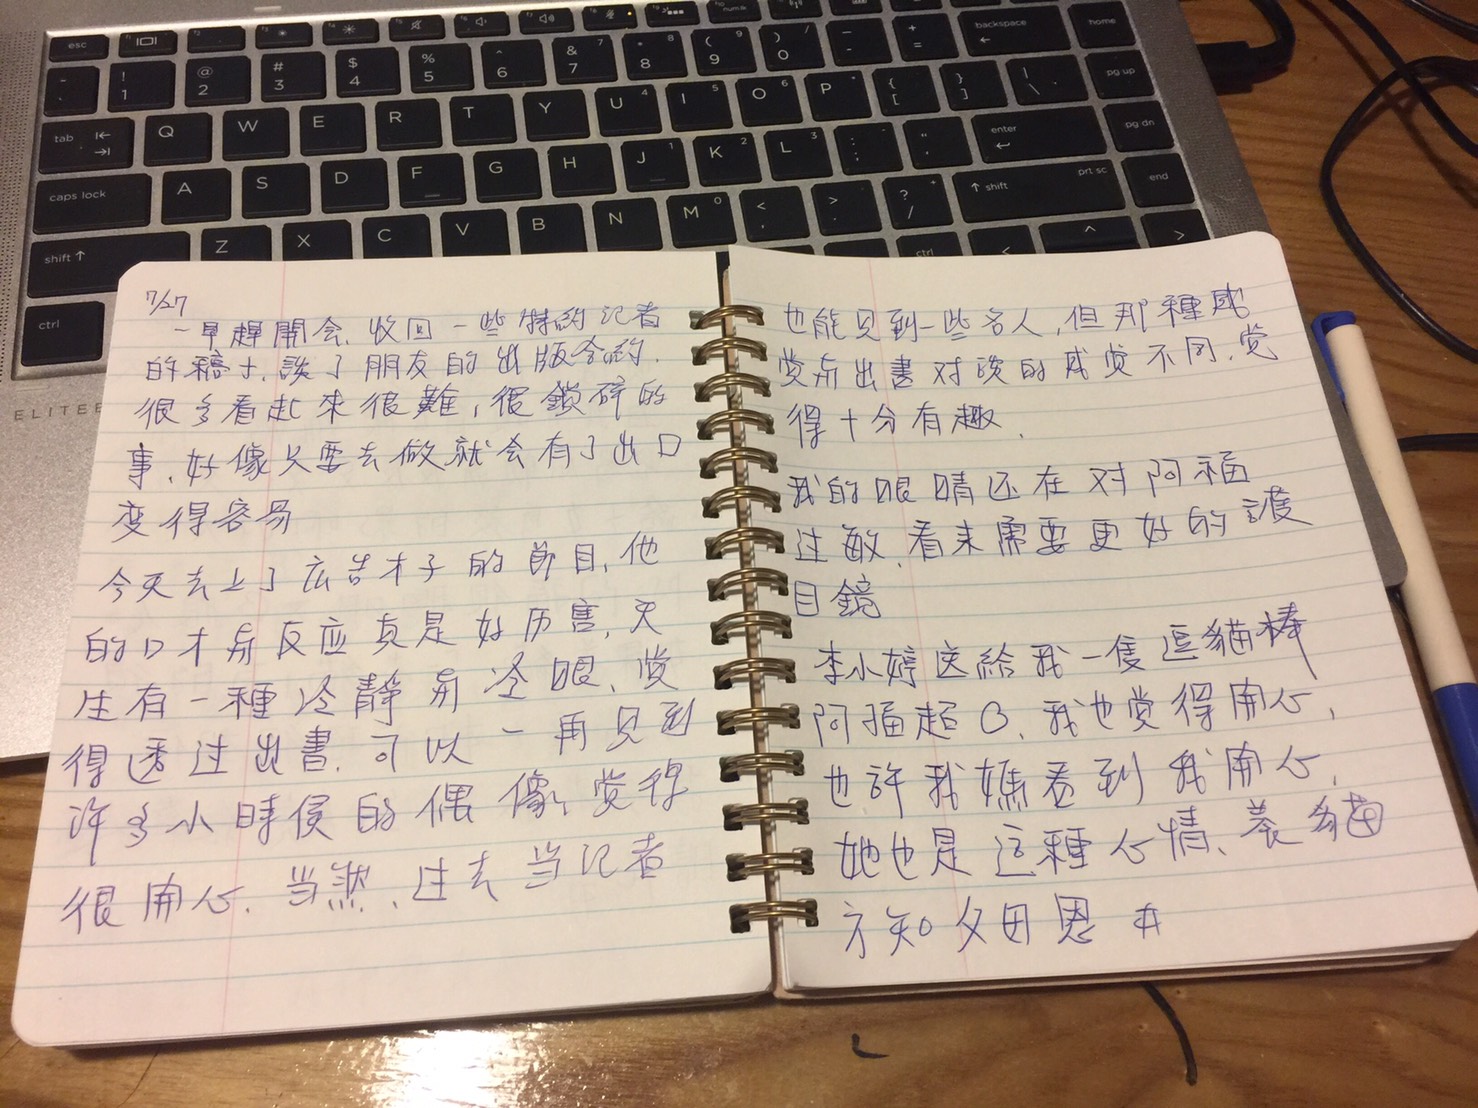 esc
num lk
backspace
home
! 1
@ 2
# 3
$ 4
% 5
^ 6
& 7 7
* 8 8
( 9 9
) 0
- -
+ =
tab
Q W E R T Y U 4 I 5 O 6 P * { [ } ] | \
pg up
caps lock
A S D F G H J 1 K 2 L 3 : ; " '
enter
pg dn
shift
Z X C V B N M 0 < , > . ? /
shift
prt sc
end
ctrl
ctrl
ELITEB
7/27
一早趕開会,收回一些特約記者
的稿件,談了朋友的出版合約.
很多看起來很難,很鎖碎的
事,好像只要去做就会有了出口
变得容易
今天去上了広告才子的節目,他
的口才与反应真是好历害,天
生有一種冷靜与冷眼,覚
得透过出書,可以一再見到
許多小時侯的偶像,覚得
很開心.当然,过去当記者
也能見到一些名人,但那種感
覚与出書对談的感覚不同,覚
得十分有趣.
我的眼睛还在对阿福
过敏,看来需要更好的護
目鏡
李小婷送給我一隻逗貓棒
阿福超愛,我也覚得開心,
也許我媽看到我開心,
她也是這種心情、養貓
方知父母恩 #